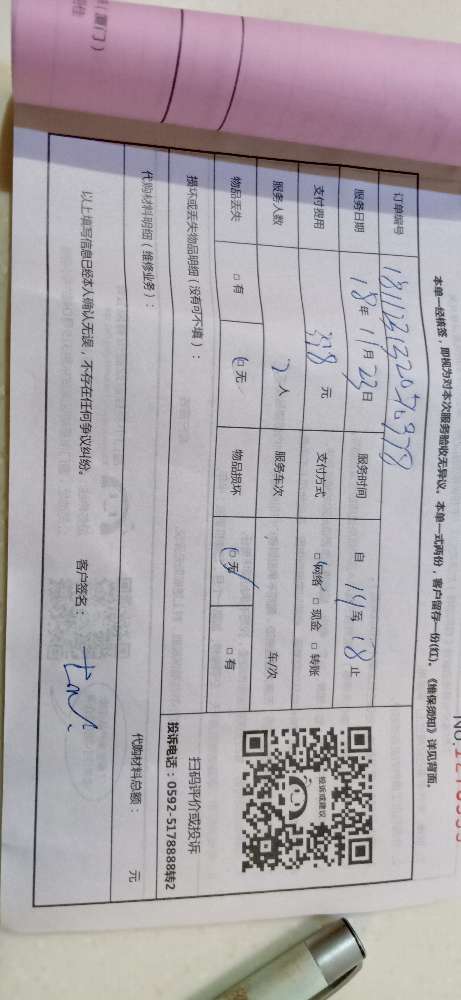 本单一经核签，即视为对本次服务验收无异议。本单一式两份，客户留存一份(红)。《维保须知》详见背面。
订单编号
服务日期 18年11月23日 服务时间 自 14至18止
支付费用 398元 支付方式 □网络 □现金 □转账
服务人数 2人 服务车次 车/次
物品丢失 □有 □无 物品损坏 □无 □有
损坏或丢失物品明细(没有可不填)：
代购材料明细(维修业务)： 代购材料总额： 元
以上填写信息已经本人确认无误，不存在任何争议纠纷。 客户签名：
投诉或建议
扫码评价或投诉
投诉电话：0592-5178888转2